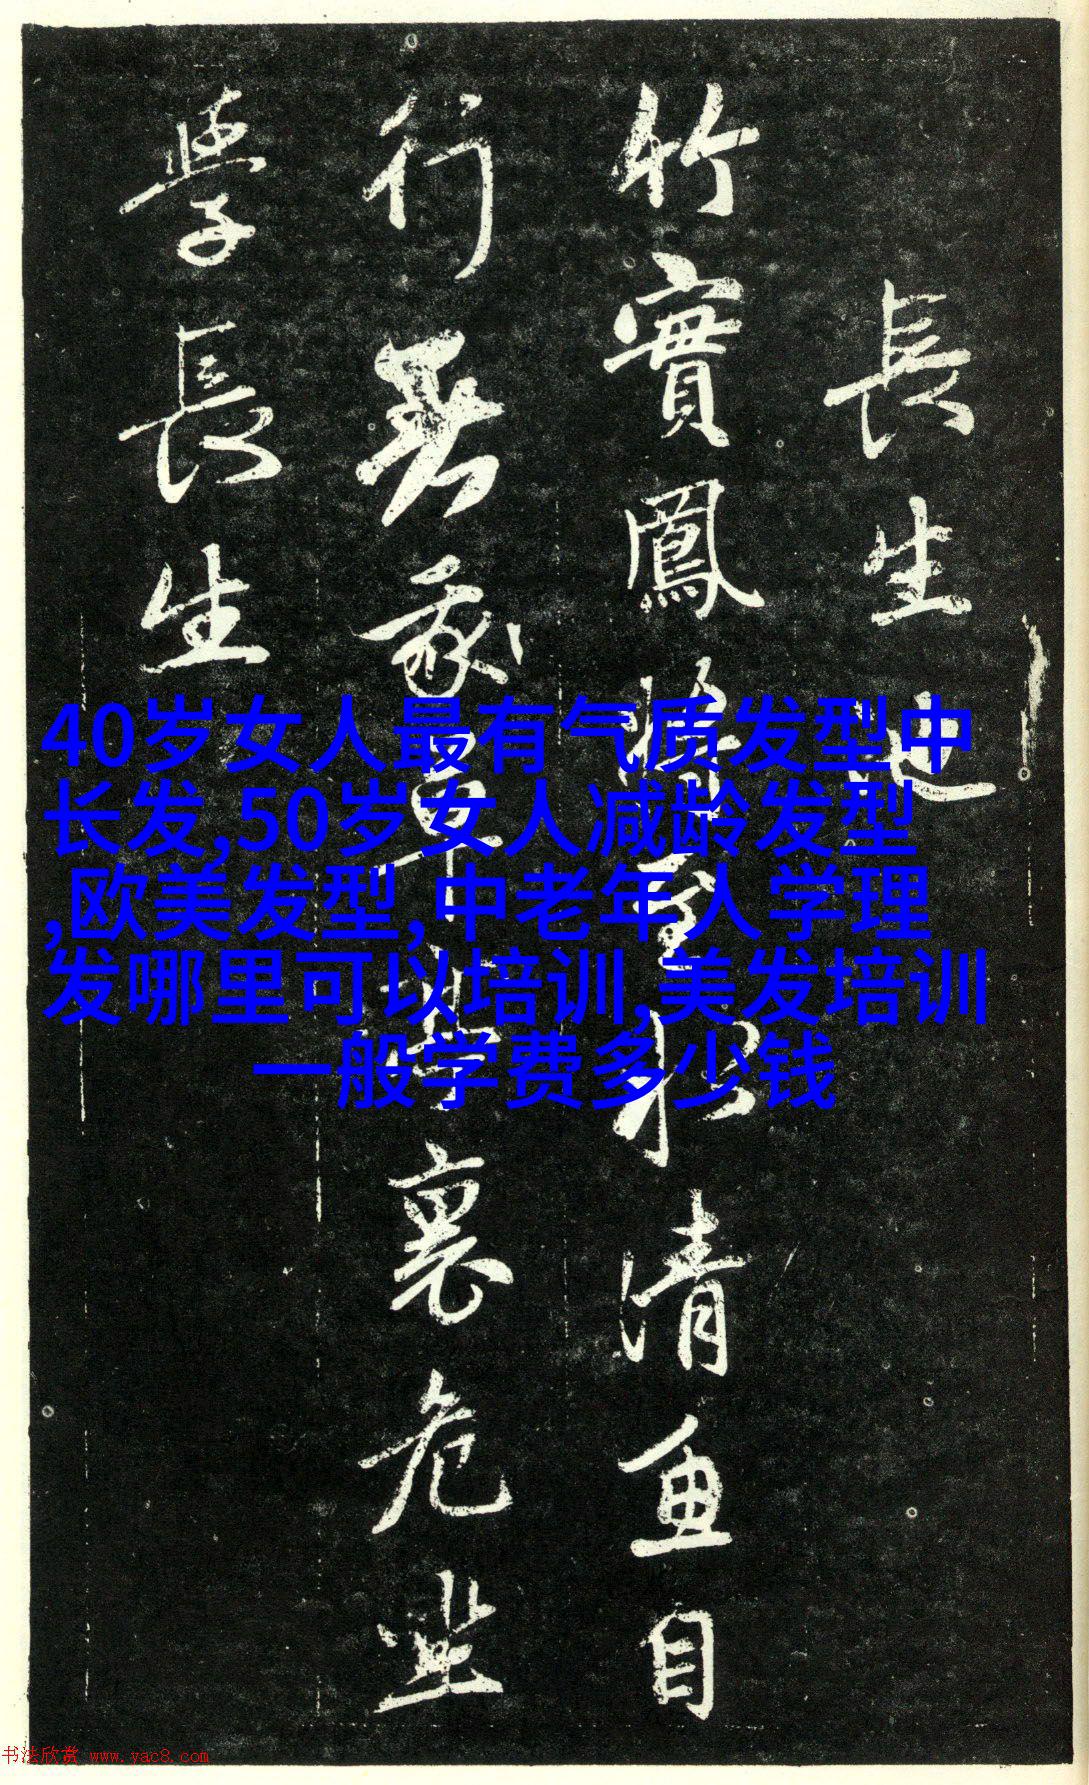 長生
竹實鳳將至水清魚自
行無裏危坐
學長生
40岁女人最有气质发型中
长发,50岁女人减龄发型
,欧美发型,中老年人学理
发哪里可以培训,美发培训
一般学费多少钱
书法欣赏 www.yac8.com